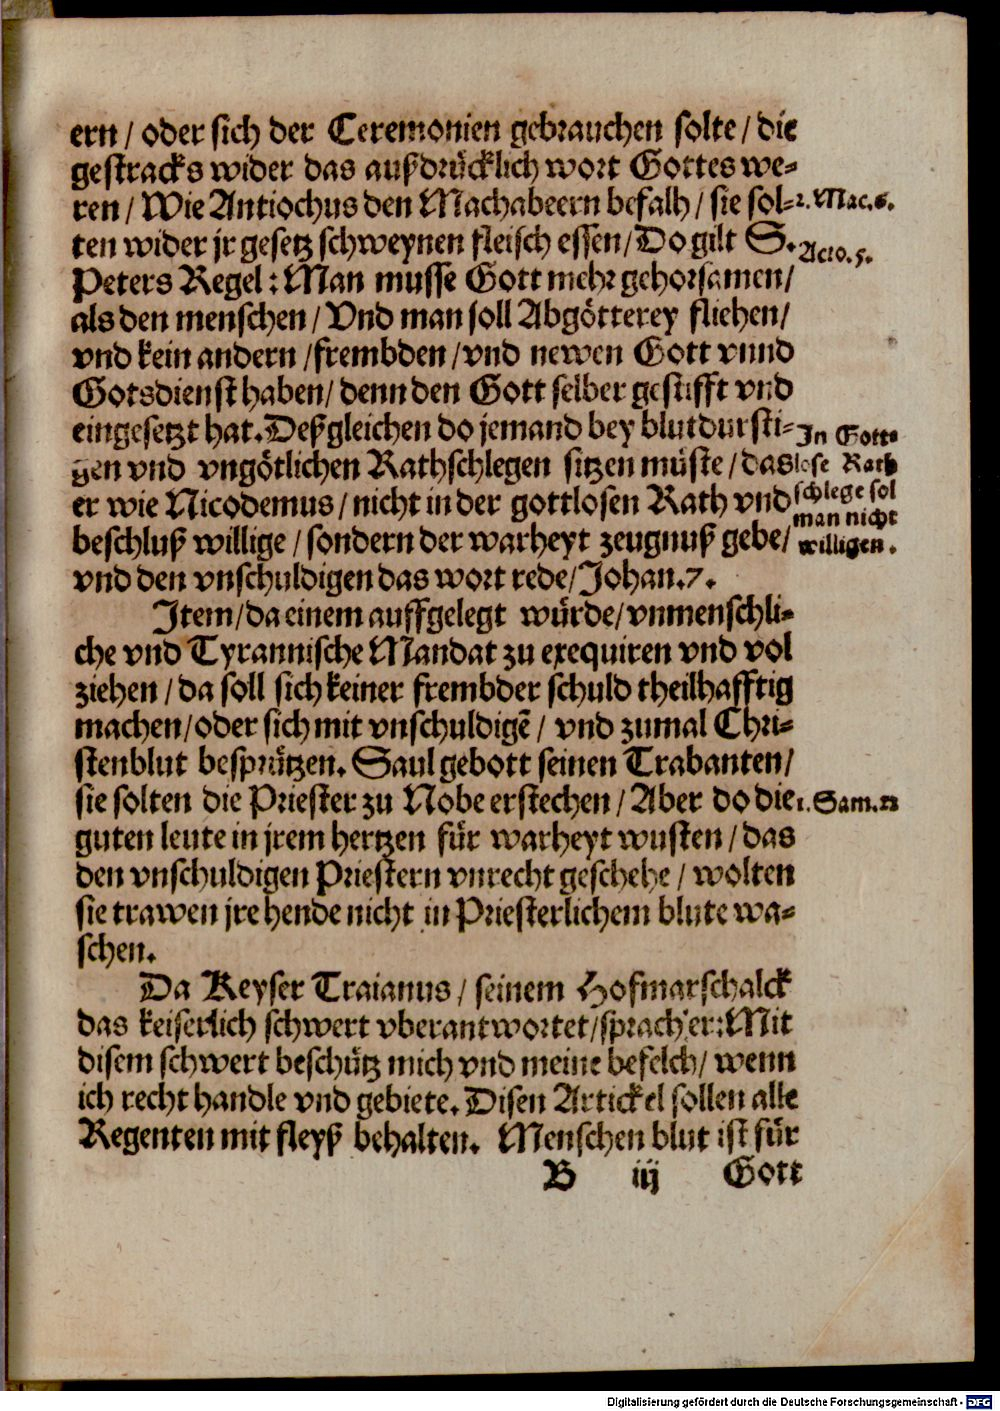 ern / oder sich der Ceremonien gebrauchen solte / die
gestracks wider das außdrücklich wort Gottes we-
ren / Wie Antiochus den Machabeern befalh / sie sol-
2. Mac. 6.
ten wider jr gesetz schweynen fleisch essen / Do gilt S.
Acto. 5.
Peters Regel : Man musse Gott mehr gehorsamen /
als den menschen / Vnd man soll Abgötterey fliehen /
vnd kein andern / frembden / vnd newen Gott vnnd
Gotsdienst haben / denn den Gott selber gestifft vnd
eingesetzt hat. Deßgleichen do jemand bey blutdursti-
gen vnd vngötlichen Rathschlegen sitzen müste / das
er wie Nicodemus / nicht in der gottlosen Rath vnd
beschluß willige / sondern der warheyt zeugnuß gebe /
vnd den vnschuldigen das wort rede / Johan. 7.
In Gott-
lose Rath
schlege sol
man nicht
willigen.
Item / da einem auffgelegt würde / vnmenschli-
che vnd Tyrannische Mandat zu exequiren vnd vol
ziehen / da soll sich keiner frembder schuld theilhafftig
machen / oder sich mit vnschuldigẽ / vnd zumal Chri-
stenblut besprützen. Saul gebott seinen Trabanten /
sie solten die Priester zu Nobe erstechen / Aber do die
1. Sam. 22
guten leute in jrem hertzen für warheyt wusten / das
den vnschuldigen Priestern vnrecht geschehe / wolten
sie trawen jre hende nicht in Priesterlichem blute wa-
schen.
Da Keyser Traianus / seinem Hofmarschalck
das keiserlich schwert vberantwortet / sprach er : Mit
disem schwert beschütz mich vnd meine befelch / wenn
ich recht handle vnd gebiete. Disen Artickel sollen alle
Regenten mit fleyß behalten. Menschen blut ist für
B iij Gott
Digitalisierung gefördert durch die Deutsche Forschungsgemeinschaft - DFG